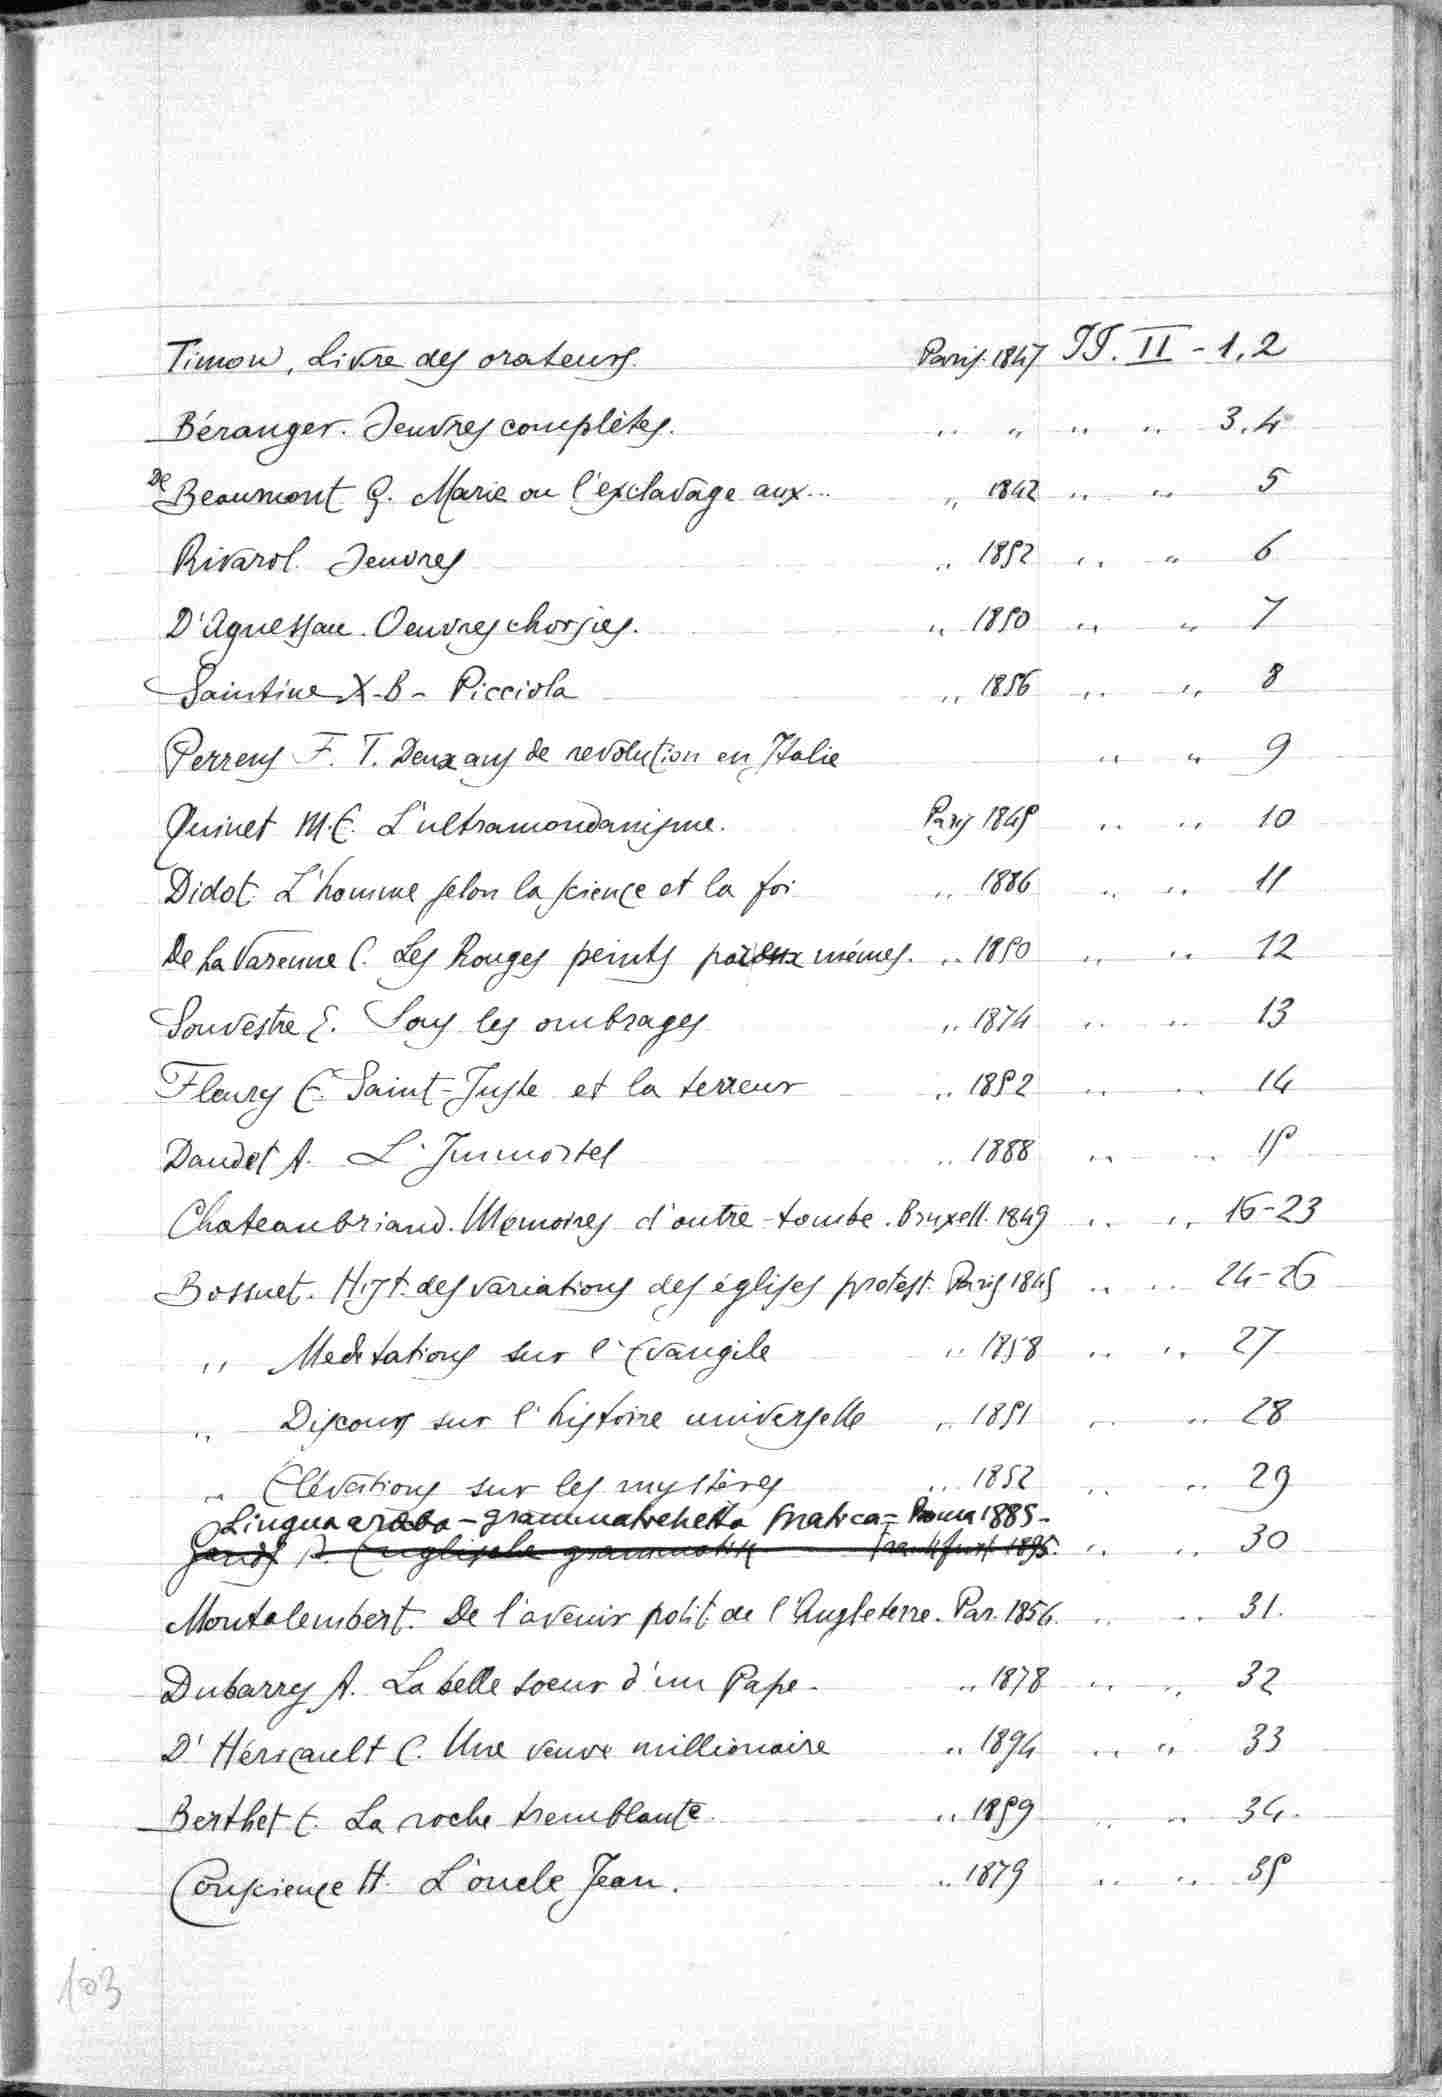 Timon, Livre des orateurs. Paris 1847 JJ. II - 1, 2
Béranger. Oeuvres complètes. " " " " 3.4
De Beaumont G. Marie ou l'esclavage aux... " 1842 " " 5
Rivarol. Oeuvres " 1852 " " 6
D'Aguessau. Oeuvres choisies. " 1850 " " 7
Saintine X-B- Picciola " 1856 " " 8
Perrens F. T. Deux ans de revolution en Italie " " 9
Quinet M. E. L'ultramondanisme. Paris 1845 " " 10
Didot. L'homme selon la science et la foi " 1886 " " 11
De La Varenne C. Les Rouges peints par eux mêmes. " 1850 " " 12
Souvestre E. Sous les ombrages " 1874 " " 13
Fleury E. Saint-Juste et la terreur " 1852 " " 14
Daudet A. L'Immortel " 1888 " " 15
Chateaubriand. Memoires d'outre-tombe. Bruxell. 1849 " " 16-23
Bossuet. Hist. des variations des églises protest. Paris 1845 " " 24-26
" Meditations sur l'Evangile " 1858 " " 27
" Discours sur l'histoire universelle " 1851 " " 28
" Elevations sur les mystères " 1852 " " 29
Lingua araba - grammatichetta pratica = Roma 1885-
Englische grammatik Frankfurt 1895. " " 30
Montalembert. De l'avenir polit. de l'Angleterre. Par. 1856. " " 31.
Dubarry A. La belle soeur d'un Pape. " 1878 " " 32
D'Héricault C. Une veuve millionaire " 1894 " " 33
Berthet E. La roche tremblante. " 1859 " " 34.
Conscience H. L'oncle Jean. " 1879 " " 35
103